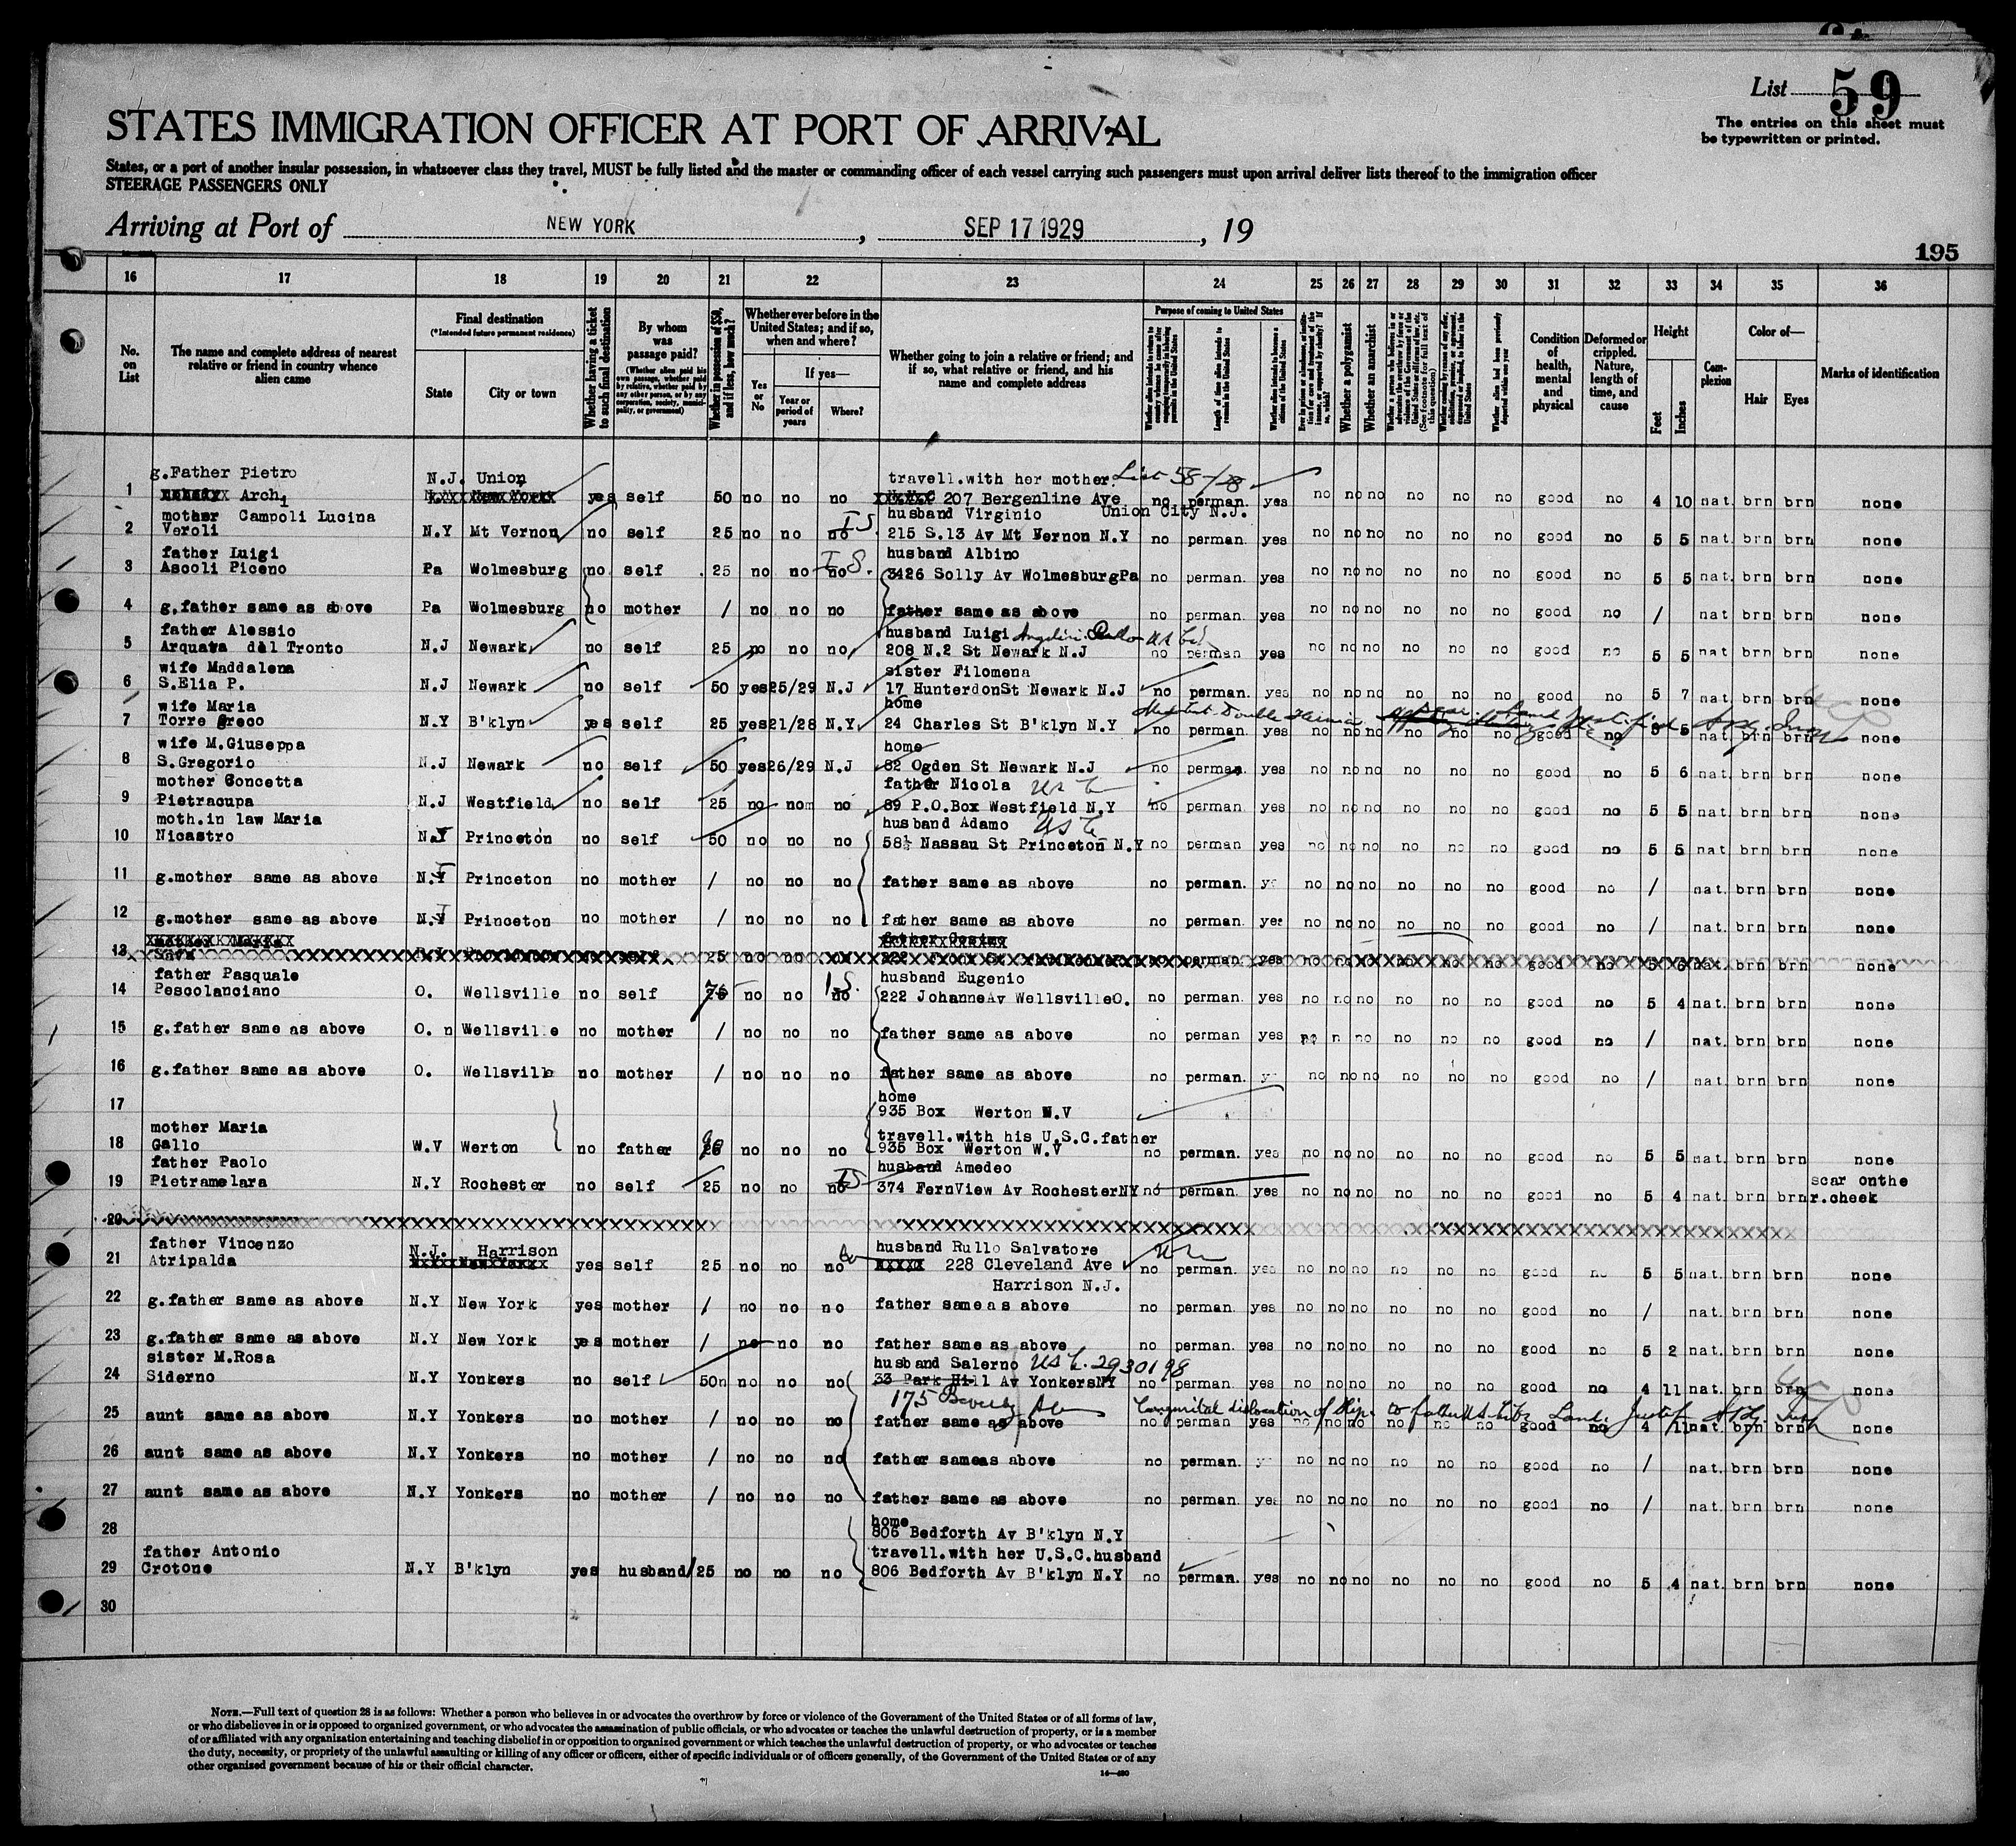 List 59
The entries on this sheet must
be typewritten or printed.
STATES IMMIGRATION OFFICER AT PORT OF ARRIVAL
States, or a port of another insular possession, in whatsoever class they travel, MUST be fully listed and the master or commanding officer of each vessel carrying such passengers must upon arrival deliver lists thereof to the immigration officer
STEERAGE PASSENGERS ONLY
Arriving at Port of NEW YORK, SEP 17 1929, 19
195
16 17 18 19 20 21 22 23 24 25 26 27 28 29 30 31 32 33 34 35 36
No. on List
The name and complete address of nearest relative or friend in country whence alien came
Final destination
(*Intended future permanent residence)
State
City or town
Whether having a ticket to such final destination
By whom was passage paid?
(Whether alien paid his own passage, whether paid by relative, whether paid by any other person, or by any corporation, society, municipality, or government)
Whether in possession of $50, and if less, how much?
Whether ever before in the United States; and if so, when and where?
Yes or No
If yes—
Year or period of years
Where?
Whether going to join a relative or friend; and if so, what relative or friend, and his name and complete address
Purpose of coming to United States
Length of time alien intends to remain in the United States
Whether alien intends to become a citizen of the United States
Whether a polygamist
Whether an anarchist
Condition of health, mental and physical
Deformed or crippled. Nature, length of time, and cause
Height
Feet
Inches
Complexion
Color of—
Hair
Eyes
Marks of identification
g.Father Pietro N.J. Union travell.with her mother List 58/18
1 Arch1 yes self 50 no no no 207 Bergenline Ave no perman. yes no no no no no no good no 4 10 nat. brn brn none
mother Campoli Lucina husband Virginio Union City N.J.
2 Veroli N.Y Mt Vernon no self 25 no no no 215 S.13 Av Mt Vernon N.Y no perman. yes no no no no no no good no 5 5 nat. brn brn none
father Luigi husband Albino
3 Ascoli Piceno Pa Wolmesburg no self 25 no no no 3426 Solly Av WolmesburgPa no perman. yes no no no no no no good no 5 5 nat. brn brn none
4 g.father same as above Pa Wolmesburg no mother / no no no father same as above no perman. yes no no no no no no good no / nat. brn brn none
father Alessio husband Luigi
5 Arquata del Tronto N.J Newark no self 25 no no no 208 N.2 St Newark N.J no perman yes no no no no no no good no 5 5 nat brn brn none
wife Maddalena sister Filomena
6 S.Elia P. N.J Newark no self 50 yes 25/29 N.J 17 HunterdonSt Newark N.J no perman. yes no no no no no no good no 5 7 nat. brn brn none
wife Maria home
7 Torre Greco N.Y B'klyn yes self 25 yes 21/28 N.Y 24 Charles St B'klyn N.Y no perman. yes no no no no no no good no 5 5 nat. brn brn none
Double Hernia
wife M.Giuseppa home
8 S.Gregorio N.J Newark no self 50 yes 26/29 N.J 82 Ogden St Newark N.J no perman. yes no no no no no no good no 5 6 nat. brn brn none
mother Concetta father Nicola US C
9 Pietracupa N.J Westfield no self 25 no nom no 89 P.O.Box Westfield N.Y no perman. yes no no no no no no good no 5 5 nat. brn brn none
moth.in law Maria husband Adamo US C
10 Nicastro N.J Princeton no self 50 no no no 58½ Nassau St Princeton N.Y no perman yes no no no no no no good no 5 5 nat. brn brn none
11 g.mother same as above N.J Princeton no mother / no no no father same as above no perman. no no no no no no good no / nat. brn brn none
12 g.mother same as above N.J Princeton no mother / no no no father same as above no perman. yes no no no no no no good no / nat. brn brn none
13 none
father Pasquale husband Eugenio
14 Pescolanciano O. Wellsville no self 75 no no no 222 JohanneAv WellsvilleO. no perman. yes no no no no no no good no 5 4 nat. brn brn none
15 g.father same as above O. n Wellsville no mother / no no no father same as above no perman yes no n no no no no good no / nat. brn brn none
16 g.father same as above O. Wellsville no mother / no no no father same as above no perman. no no no no no no good no / nat. brn brn none
home
17 935 Box Werton W.V
mother Maria travell.with his U.S.C.father
18 Gallo W.V Werton no father no no no 935 Box Werton W.V no perman. yes no no no no no no good no 5 5 nat. brn brn none
father Paolo husband Amedeo scar onthe
19 Pietramelara N.Y Rochester no self 25 no no no 374 FernView Av RochesterNY no perman. yes no no no no no no good no 5 4 nat. brn brn r.cheek
20
father Vincenzo N.J. Harrison husband Rullo Salvatore
21 Atripalda yes self 25 no no no 228 Cleveland Ave no perman. yes no no no no no no good no 5 5 nat. brn brn none
Harrison N.J.
22 g.father same as above N.Y New York yes mother / no no no father same as above no perman. yes no no no no no no good no / nat. brn brn none
23 g.father same as above N.Y New York yes mother / no no no father same as above no perman. yes no no no no no no good no 5 2 nat. brn brn none
sister M.Rosa husband Salerno US C. 2930198
24 Siderno N.Y Yonkers no self 50n no no no 33 Park Hill Av YonkersNY no perman. yes no no no no no no good no 4 11 nat. brn brn none
175 Beverly Congenital dislocation of Hip
25 aunt same as above N.Y Yonkers no mother / no no no father same as above no perman yes no no no no no no good no 4 11 nat. brn brn none
26 aunt same as above N.Y Yonkers no mother / no no no father sameas above no perman. no no no no no no good no / nat. brn brn none
27 aunt same as above N.Y Yonkers no mother / no no no father same as above no perman. yes no no no no no no good no / nat. brn brn none
home
28 806 Bedforth Av B'klyn N.Y
father Antonio travell.with her U.S.C.husband
29 Crotone N.Y B'klyn yes husband/ 25 no no no 806 Bedforth Av B'klyn N.Y no perman. yes no no no no no no good no 5 4 nat. brn brn none
30
NOTE.—Full text of question 28 is as follows: Whether a person who believes in or advocates the overthrow by force or violence of the Government of the United States or of all forms of law,
or who disbelieves in or is opposed to organized government, or who advocates the assassination of public officials, or who advocates or teaches the unlawful destruction of property, or is a member
of or affiliated with any organization entertaining and teaching disbelief in or opposition to organized government or which teaches the unlawful destruction of property, or who advocates or teaches
the duty, necessity, or propriety of the unlawful assaulting or killing of any officer or officers, either of specific individuals or of officers generally, of the Government of the United States or of any
other organized government because of his or their official character.